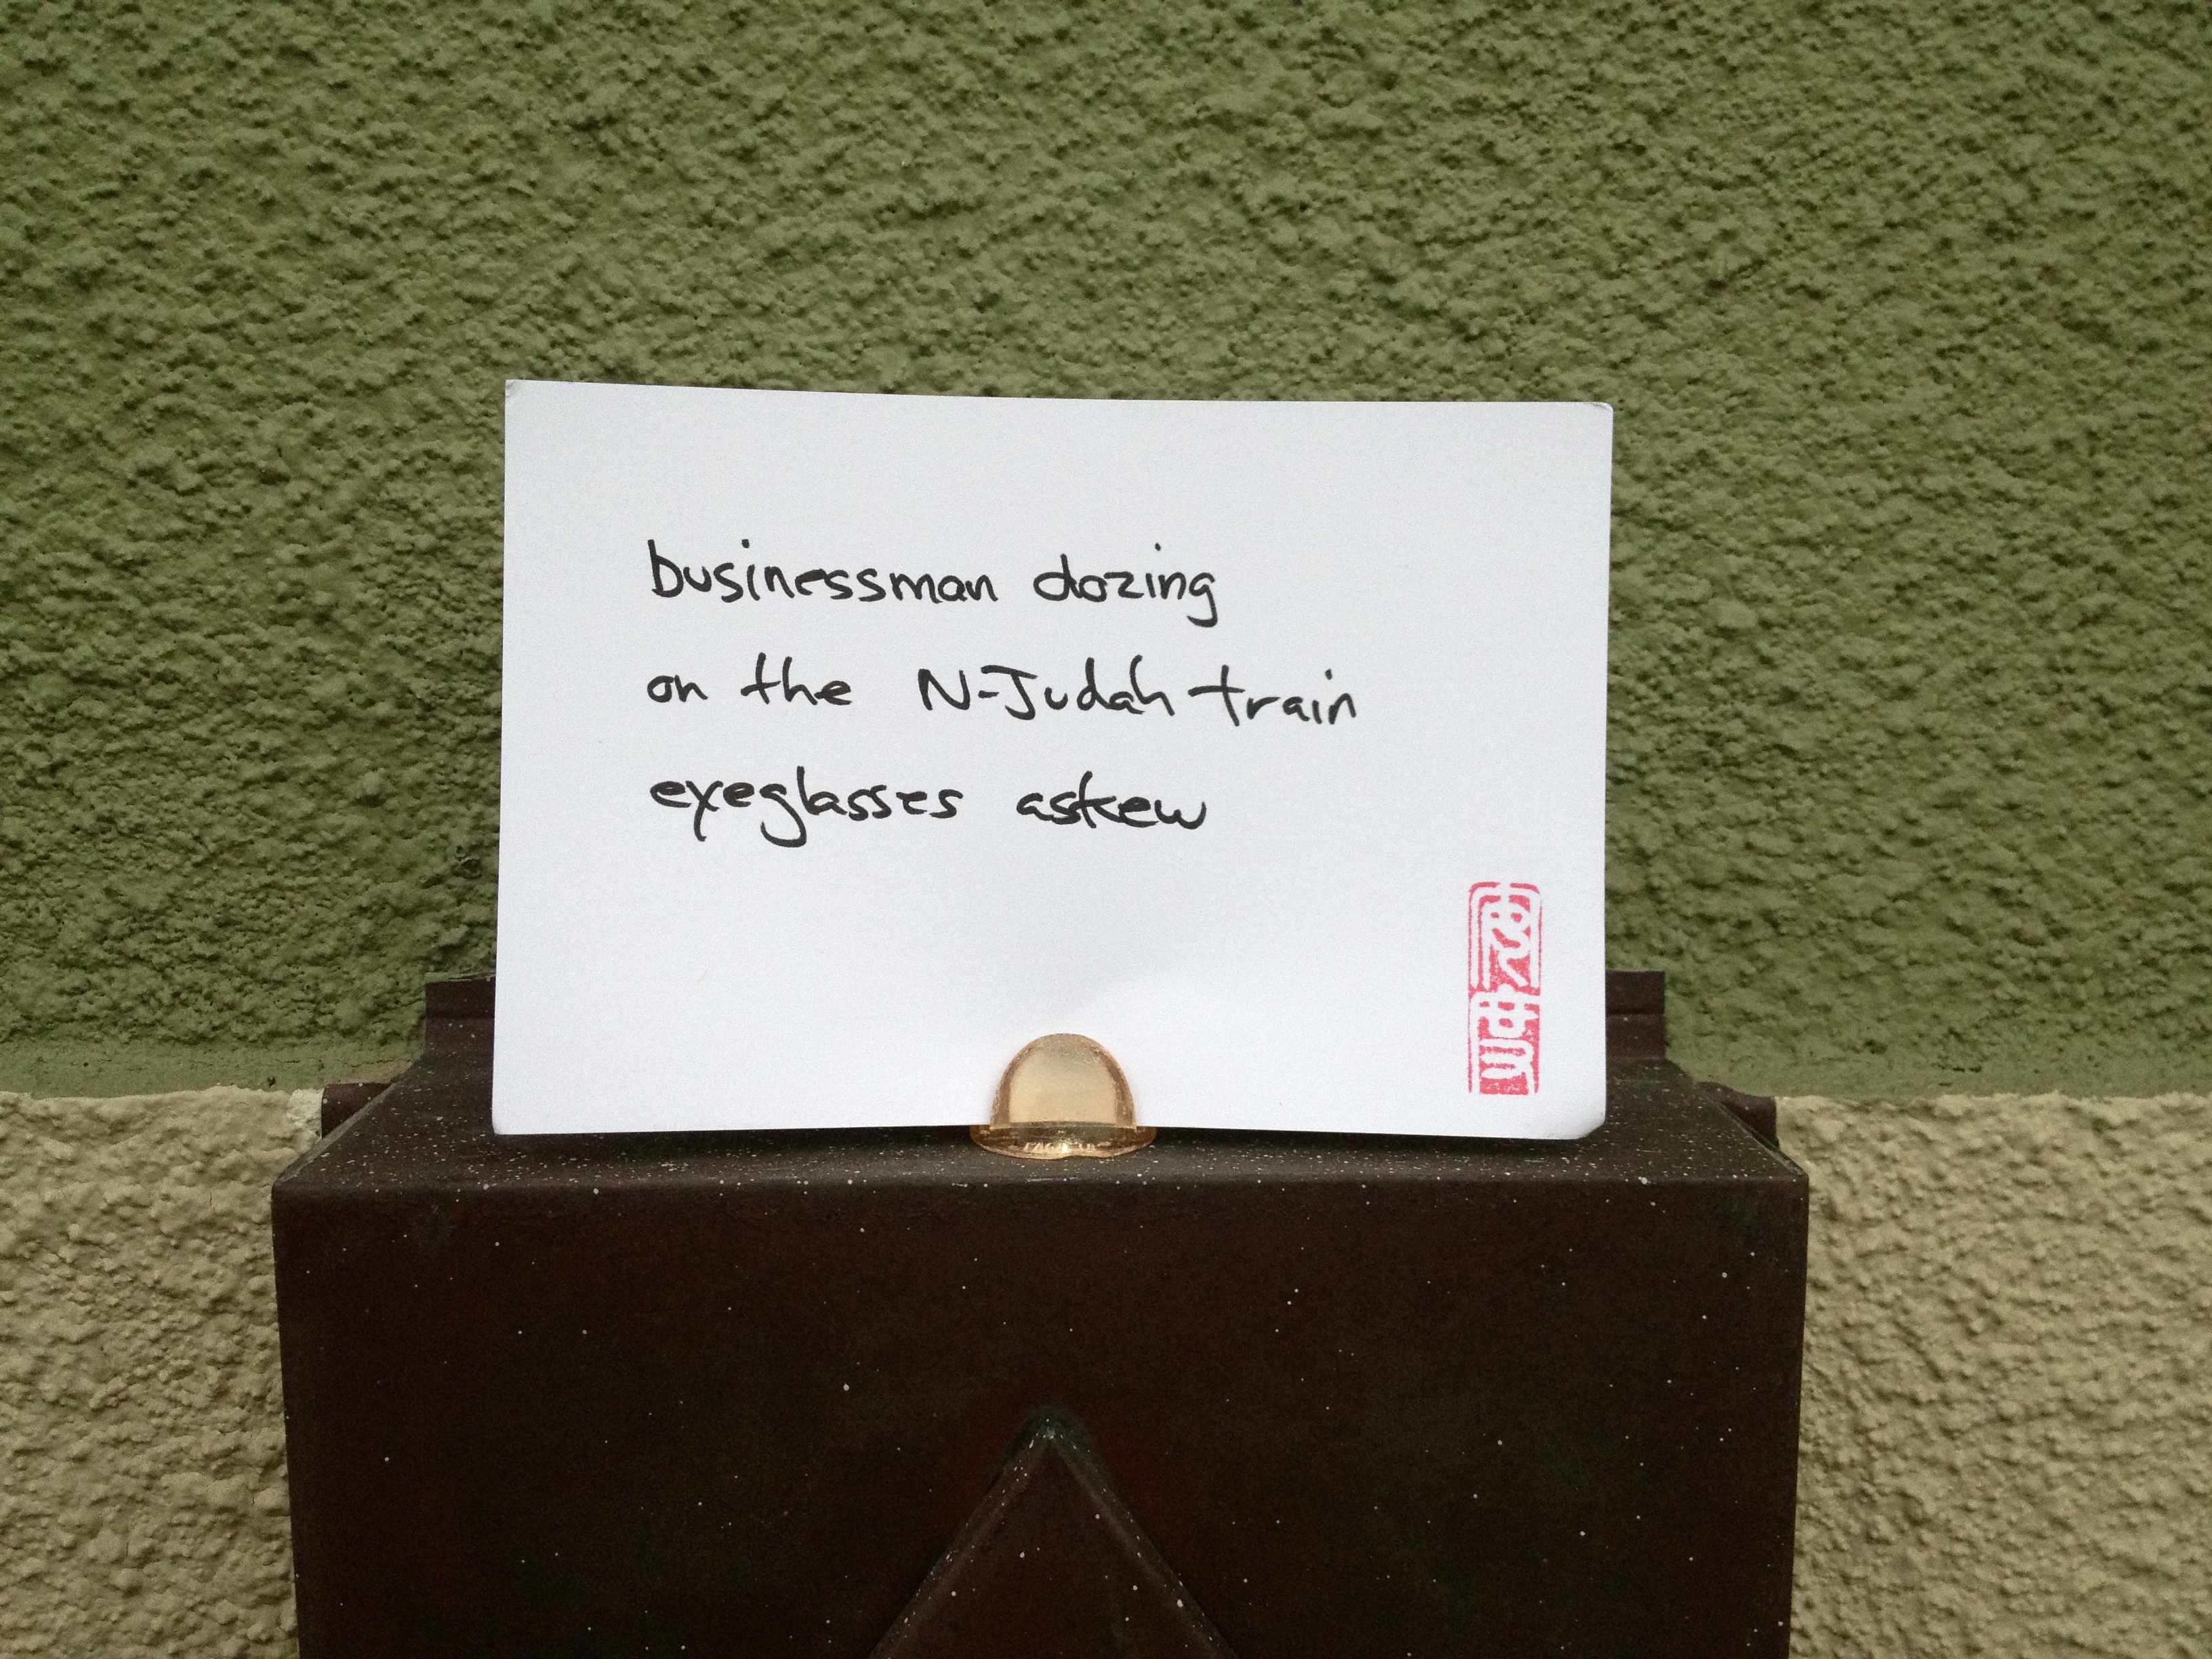 businessman dozing
on the N-Judah train
eyeglasses askew